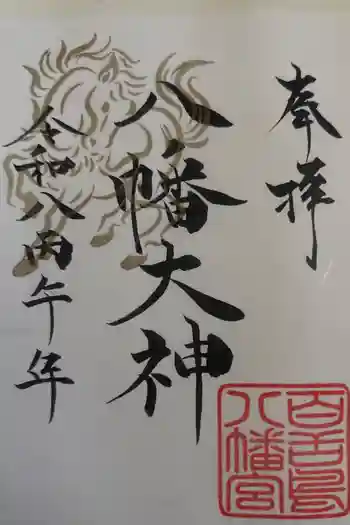 奉拝
八幡大神
令和八丙午年
百舌鳥
八幡宮